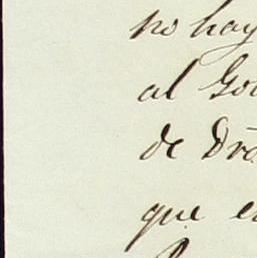 no hay
al Go
de Dro
que e